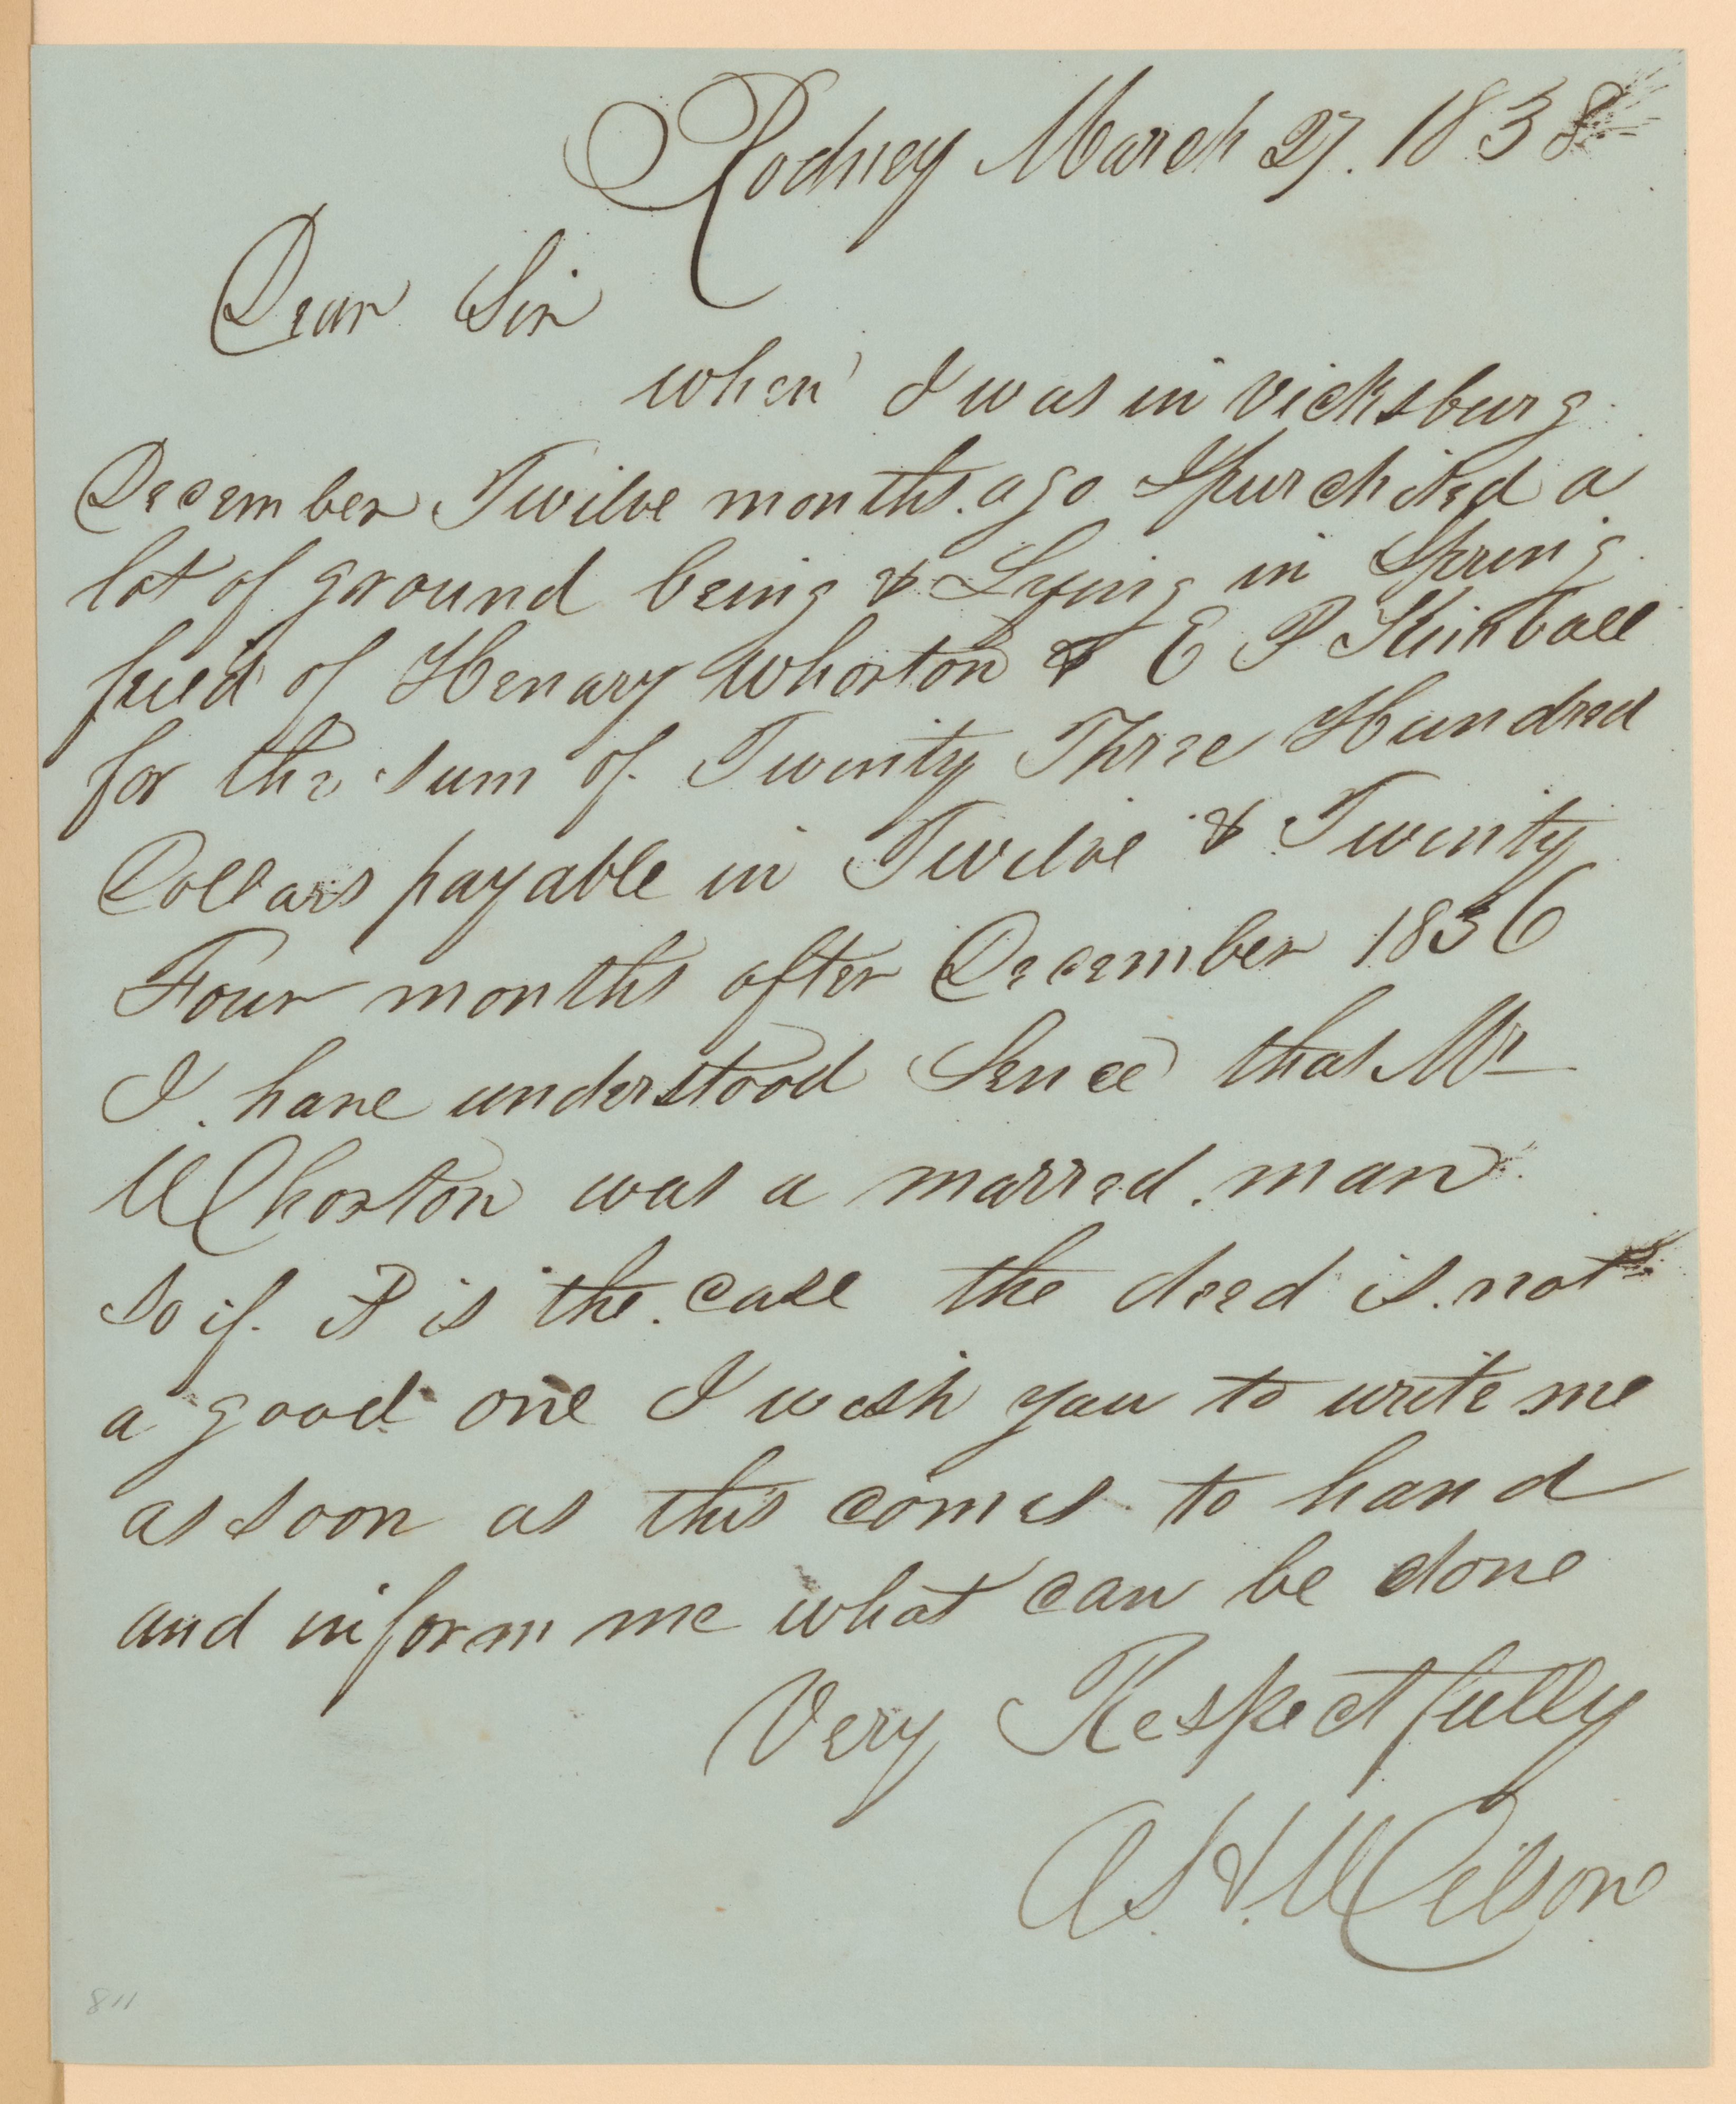 Rodney March 27. 1838
Dear Sir
when I was in vicksburg
December Twilve months ago I purchised a
lot of ground being & Lying in Spring
field of Henary Whorton & E P Kimball
for the sum of Twenty Three Hundred
Dollars payable in Twelve & Twenty
Four months after December 1836
I have understood Sence that Mr
Whorton was a marred man
so if it is the case the deed is not
a good one I wish you to write me
as soon as this comes to hand
and inform me what can be done
Very Respectfully
A. H. Wilson
811